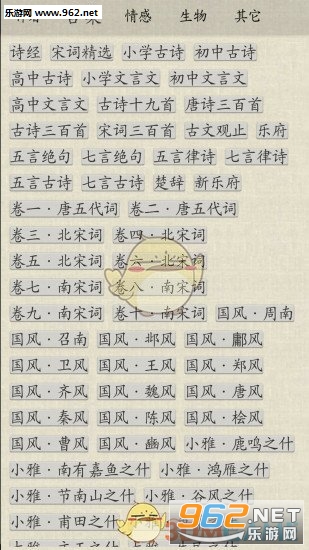 www.962.net
合集 情感 生物 其它
诗经 宋词精选 小学古诗 初中古诗
高中古诗 小学文言文 初中文言文
高中文言文 古诗十九首 唐诗三百首
古诗三百首 宋词三百首 古文观止 乐府
五言绝句 七言绝句 五言律诗 七言律诗
五言古诗 七言古诗 楚辞 新乐府
卷一·唐五代词 卷二·唐五代词
卷三·北宋词 卷四·北宋词
卷五·北宋词 卷六·北宋词
卷七·南宋词 卷八·南宋词
卷九·南宋词 卷十·南宋词 国风·周南
国风·召南 国风·邶风 国风·鄘风
国风·卫风 国风·王风 国风·郑风
国风·齐风 国风·魏风 国风·唐风
国风·秦风 国风·陈风 国风·桧风
国风·曹风 国风·豳风 小雅·鹿鸣之什
小雅·南有嘉鱼之什 小雅·鸿雁之什
小雅·节南山之什 小雅·谷风之什
小雅·甫田之什
962.NET
乐游网